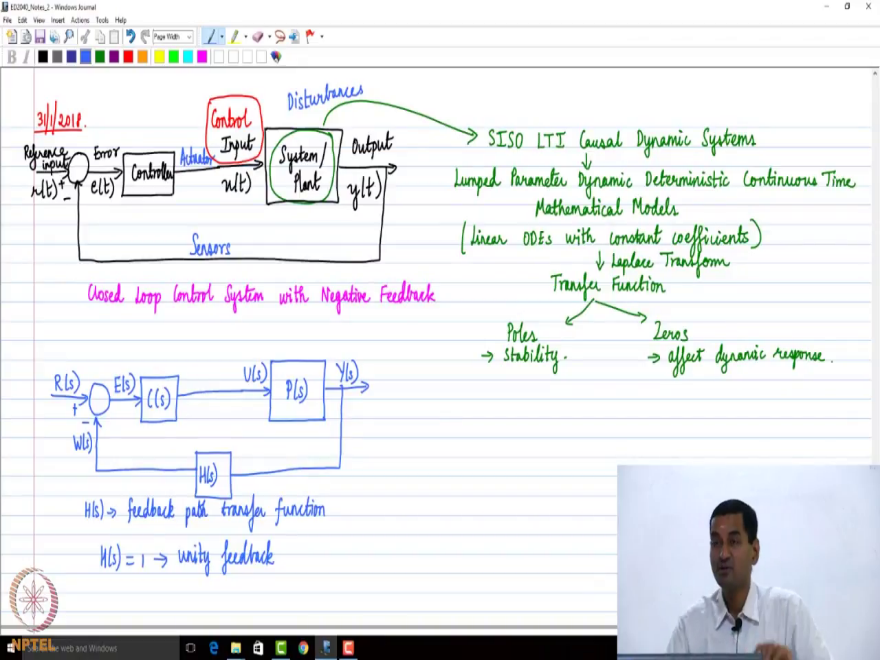 ED2040_Notes_2 - Windows Journal
File Edit View Insert Actions Tools Help
Page Width
B I
31/1/2018.
Reference input r(t) + -
Error e(t)
Controller
Actuator
Control Input u(t)
Disturbances
System/ Plant
Output y(t)
Sensors
Closed Loop Control System with Negative Feedback
SISO LTI Causal Dynamic Systems
Lumped Parameter Dynamic Deterministic Continuous Time
Mathematical Models
(Linear ODEs with constant coefficients)
↓ Laplace Transform
Transfer Function
Poles
→ stability.
Zeros
→ affect dynamic response.
R(s) + - E(s) C(s) U(s) P(s) Y(s)
W(s)
H(s)
H(s) → feedback path transfer function
H(s) = 1 → unity feedback
NPTEL
the web and Windows